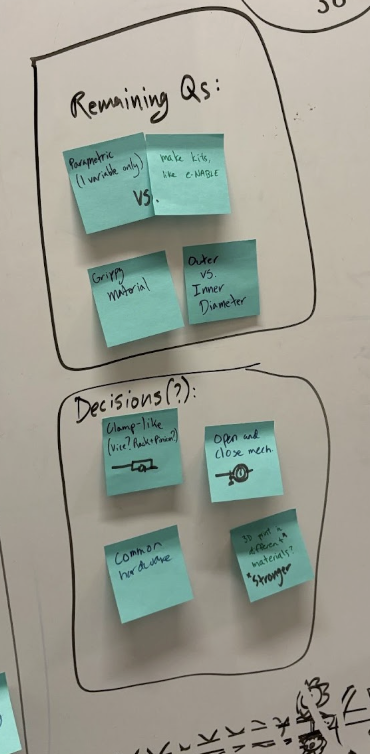 30
Remaining Qs:
Parametric
(1 variable only)
VS.
make kits,
like e-NABLE
Grippy
material
Outer
vs.
Inner
Diameter
Decisions(?):
Clamp-like
(Vice? Rack+Pinion?)
Open and
close mech.
Common
hardware
3D print a
different*
materials?
*Stronger